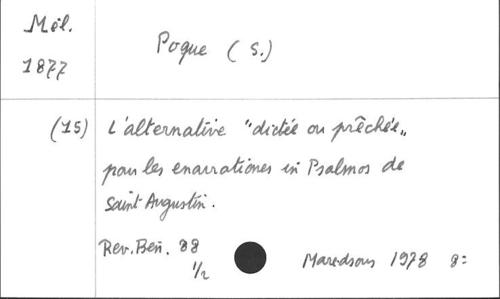 Mél.
1877
Poque (S.)
(15) L'alternative "dictée ou prêchée„
pour les enarrationes in Psalmos de
Saint Augustin.
Rev. Ben. 88
1/2
Maredsous 1978 8: